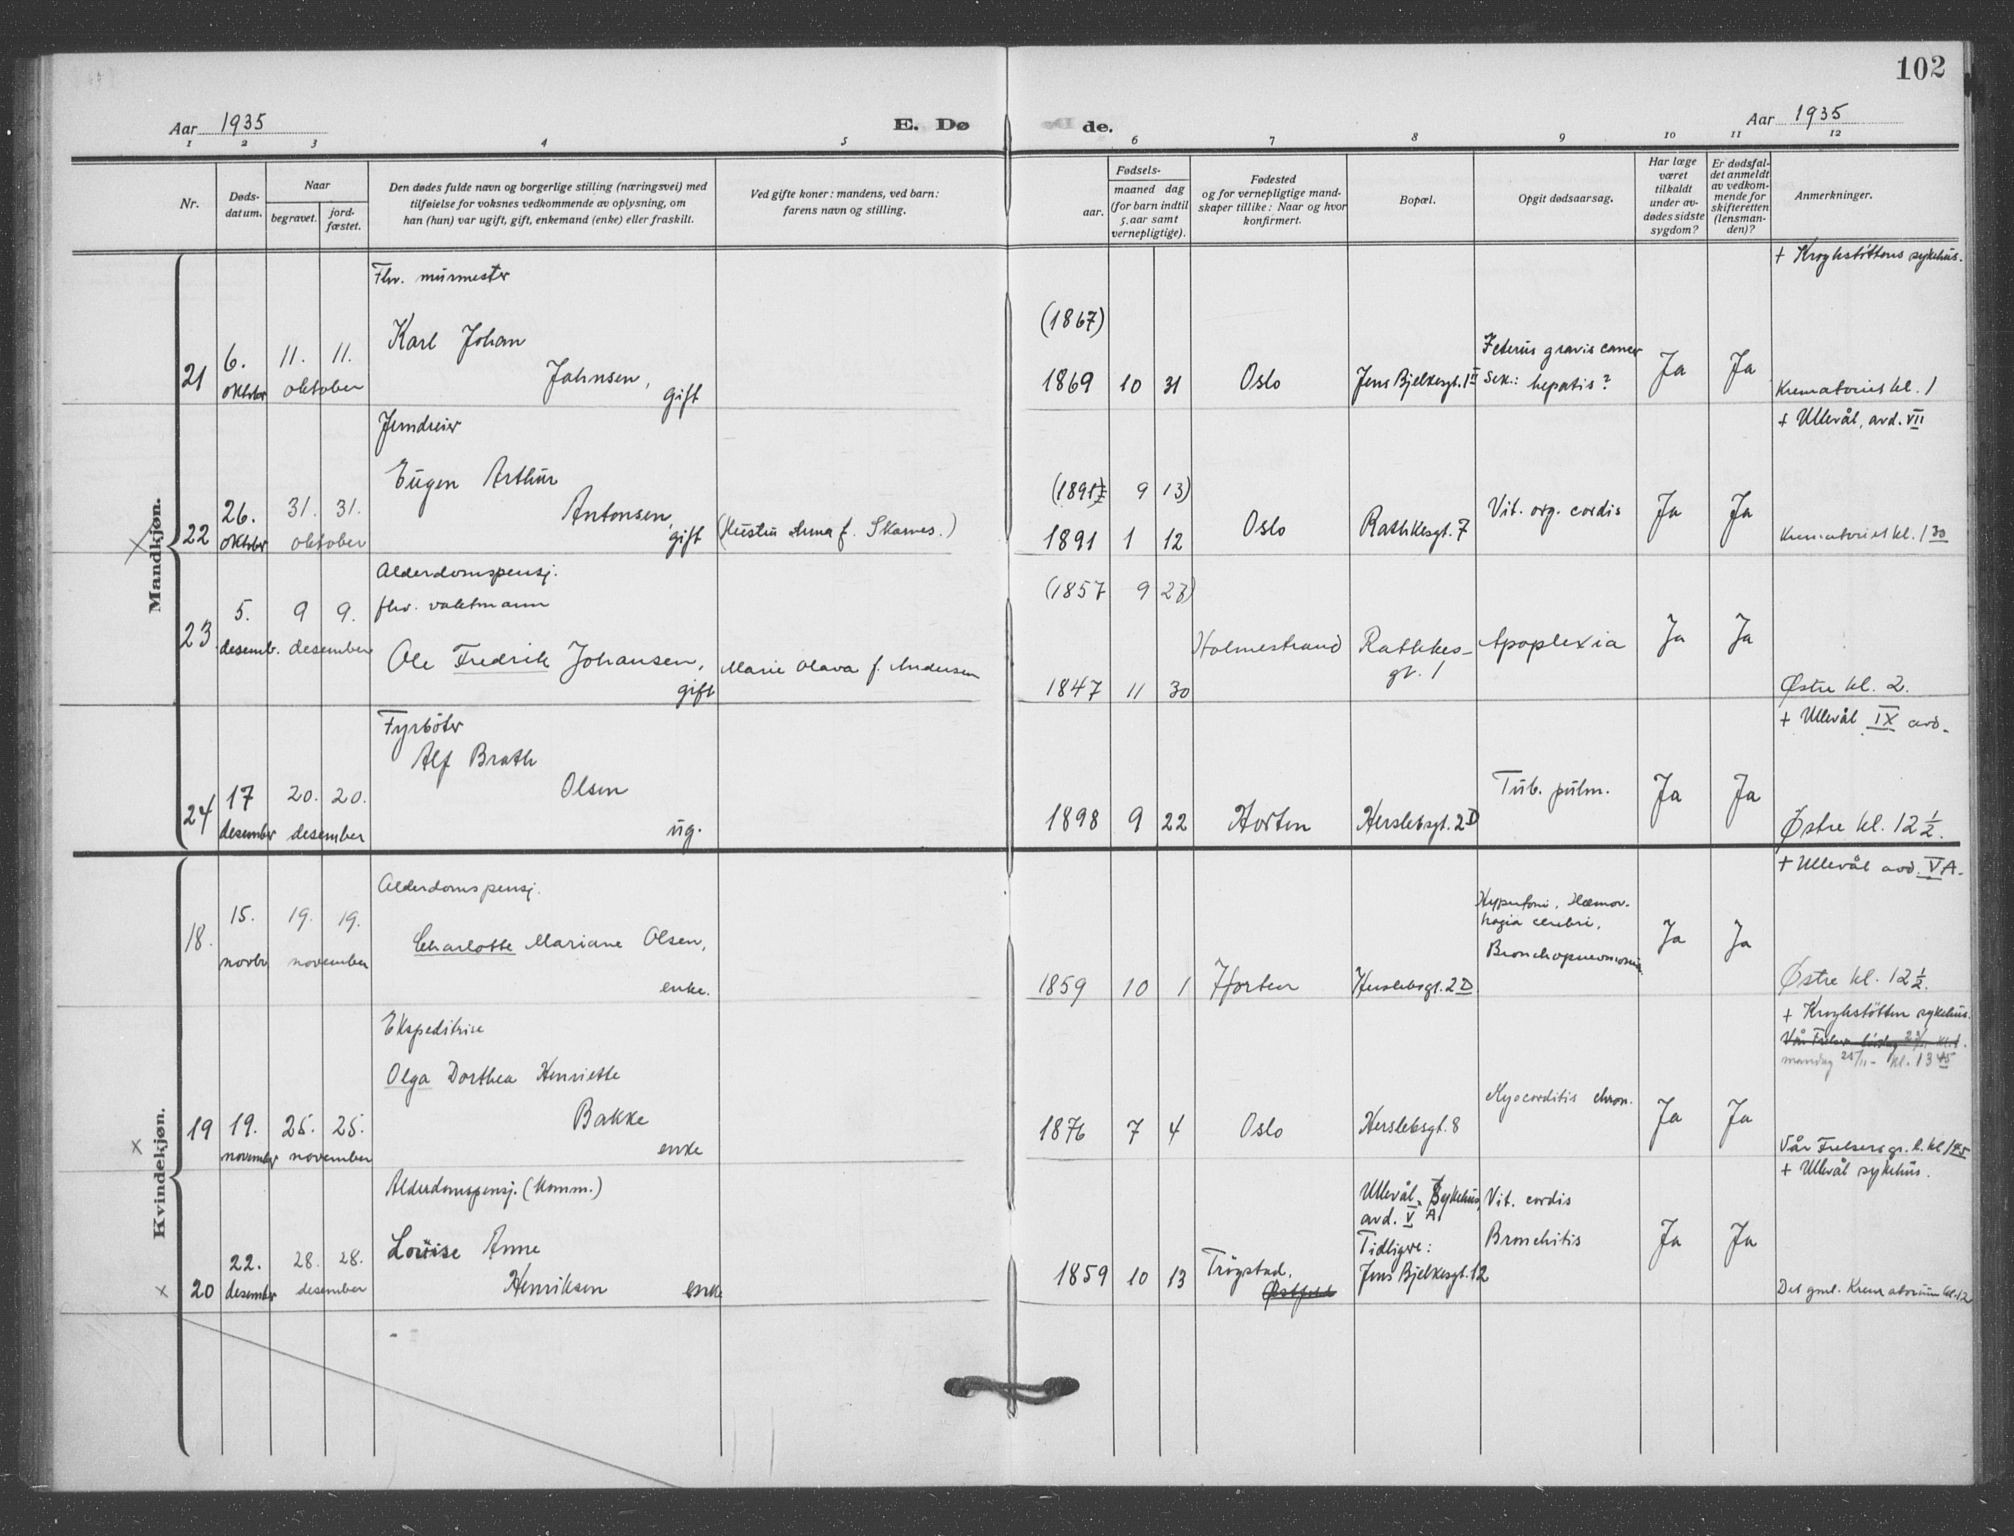 102
Aar 1935
E. Dø de.
Aar 1935
1 2 3 4 5 6 7 8 9 10 11 12
Nr.
Døds-
datum.
Naar
begravet.
jord-
fæstet.
Den dødes fulde navn og borgerlige stilling (næringsvei) med
tilføielse for voksnes vedkommende av oplysning, om
han (hun) var ugift, gift, enkemand (enke) eller fraskilt.
Ved gifte koner: mandens, ved barn:
farens navn og stilling.
Fødsels-
aar.
maaned dag
(for barn indtil
5 aar samt
vernepligtige).
Fødested
og for vernepligtige mand-
skaper tillike: Naar og hvor
konfirmert.
Bopæl.
Opgit dødsaarsag.
Har læge
været
tilkaldt
under av-
dødes sidste
sygdom?
Er dødsfal-
det anmeldt
av vedkom-
mende for
skifteretten
(lensman-
den)?
Anmerkninger.
Mandkjøn.
Fhv. murmester
+ Kroghstøttens sykehus.
(1867)
Karl Johan
21 6. 11. 11.
oktober oktober
Jahnsen,
gift
1869 10 31 Oslo Jens Bjelkesgt. 1 II
Icterus gravis cancer
Sek.: hepatis?
Ja Ja
Krematoriet kl. 1
Jerndreier
+ Ullevål, avd. VII
Eugen Arthur
(1891 9 13)
22 26. 31. 31.
oktober oktober
Antonsen,
gift
(Hustru Anna f. Skarnes.)
1891 1 12 Oslo Rathkesgt. 7
Vit. org. cordis
Ja Ja
Krematoriet kl. 1 30
Alderdomspensj.
fhv. vaktmann
(1857 9 23)
23. 5. 9 9.
desemb. desember
Ole Fredrik Johansen,
gift
Marie Olava f. Andersen
1847 11 30
Holmestrand
Rathkes-
gt. 1
Apoplexia
Ja Ja
Østre kl. 2.
Fyrbøter
+ Ullevål IX avd.
Alf Brath
24 17 20. 20.
desember desember
Olsen
ug.
1898 9 22 Horten Herslebsgt. 2D
Tub. pulm.
Ja Ja
Østre kl. 12 ½.
Kvindekjøn.
Alderdomspensj.
+ Ullevål avd. V A.
18. 15. 19. 19.
novbr november
Charlotte Mariane Olsen,
enke.
1859 10 1 Horten Herslebsgt. 2D
Hypertoni, Hæmor-
hagia cerebri,
Bronchopneumonia
Ja Ja
Østre kl. 12 ½.
Ekspeditrise
+ Kroghstøtten sykehus.
mandag 25/11 - kl. 13 45
Olga Dorthea Henriette
19 19. 25. 25.
november november
Bakke
enke
1876 7 4 Oslo Herslebsgt. 8
Myocorditis chron.
Ja Ja
Vår Frelsersgr. k. kl 1 45
Alderdomspensj. (komm.)
+ Ullevål sykehus.
20 22. 28. 28.
desember desember
Louise Anne
Henriksen enke
1859 10 13 Trøgstad.
Østfold
Ullevål Sykehus,
avd. V A
Tidligere:
Jens Bjelkesgt. 12
Vit. cordis
Bronchitis
Ja Ja
Det gml. Krematorium kl. 12